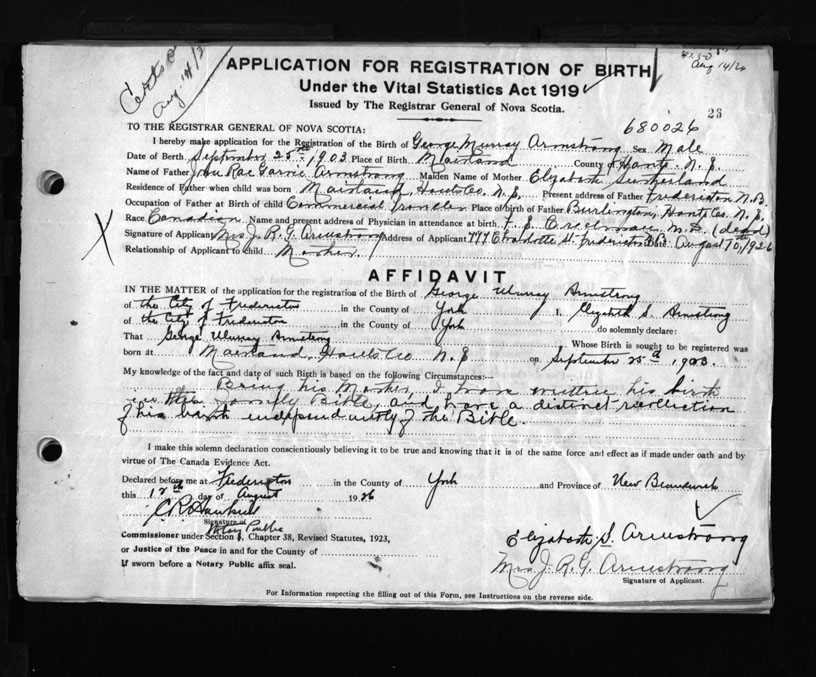 Aug 14/26
Aug 14/2
APPLICATION FOR REGISTRATION OF BIRTH
Under the Vital Statistics Act 1919
Issued by The Registrar General of Nova Scotia.
23
TO THE REGISTRAR GENERAL OF NOVA SCOTIA:
680026
I hereby make application for the Registration of the Birth of George Murray Armstrong Sex Male
Date of Birth September 25 1903 Place of Birth Maitland County of Hants N.S.
Name of Father John Rae Garrie Armstrong Maiden Name of Mother Elizabeth Sutherland
Residence of Father when child was born Maitland, Hants Co. N.S. Present address of Father Fredericton N.B.
Occupation of Father at Birth of child Commercial Traveller Place of birth of Father Burlington, Hants Co. N.S.
Race Canadian Name and present address of Physician in attendance at birth M.D. (dead)
Signature of Applicant Mrs J. R. G. Armstrong Address of Applicant 777 Charlotte St. Fredericton Date August 10th/1926
Relationship of Applicant to child Mother.
AFFIDAVIT
IN THE MATTER of the application for the registration of the Birth of George Murray Armstrong
of the City of Fredericton in the County of York I, Elizabeth S. Armstrong
of the City of Fredericton in the County of York do solemnly declare:
That George Murray Armstrong Whose Birth is sought to be registered was
born at Maitland, Hants Co. N.S. on September 25 1903.
My knowledge of the fact and date of such Birth is based on the following Circumstances:
Being his Mother, I have written his birth
in the Family Bible, and have a distinct recollection
of his birth independently of the Bible.
I make this solemn declaration conscientiously believing it to be true and knowing that it is of the same force and effect as if made under oath and by
virtue of The Canada Evidence Act.
Declared before me at Fredericton in the County of York and Province of New Brunswick
this 12th day of August 1926
Signature of
Notary Public
Commissioner under Section 1, Chapter 38, Revised Statutes, 1923,
or Justice of the Peace in and for the County of
If sworn before a Notary Public affix seal.
Elizabeth S. Armstrong
Mrs J. R. G. Armstrong
Signature of Applicant.
For Information respecting the filling out of this Form, see Instructions on the reverse side.